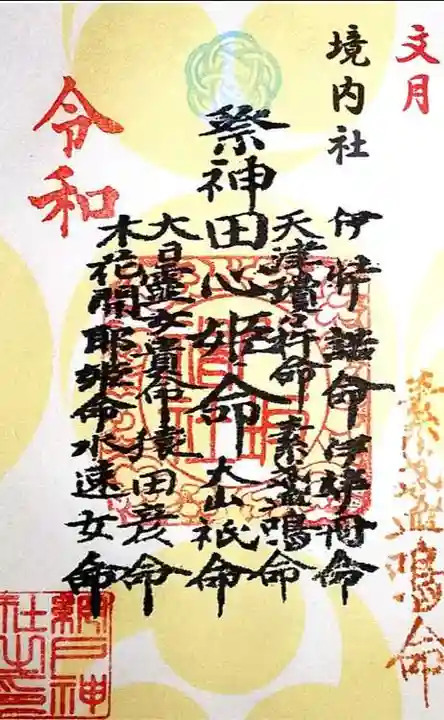 文月
境内社
伊弉諾命伊弉冊命
天津瓊々杵命素盞嗚命
祭神田心姫命大山祇命
大日孁女貴命猿田彦命
木花開耶姫命水速女命
令和
素盞嗚命
網戸神社之印